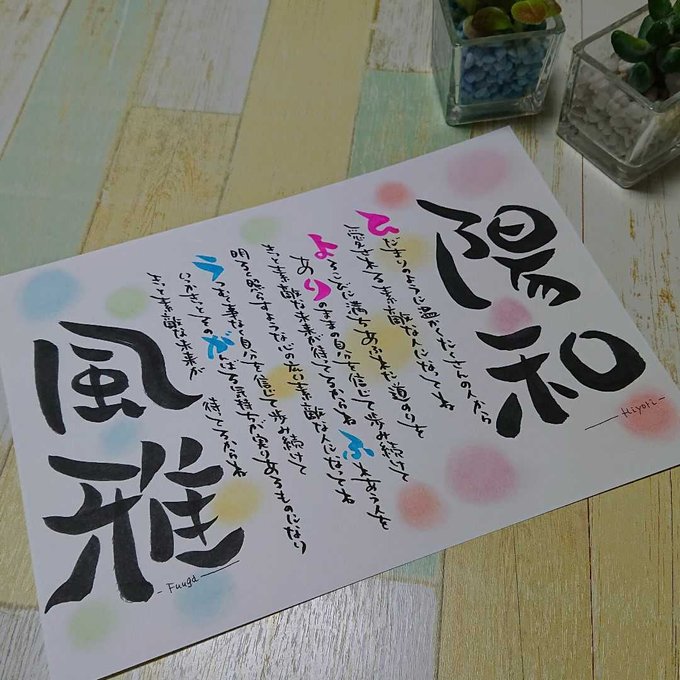 陽和
-Hiyori-
ひだまりのように温かくたくさんの人から
愛される素敵な人になってね
よろこびに満ちあふれた道のりを
ありのままの自分を信じて歩み続けて
きっと素敵な未来が待ってるからね
ふれあう人を
明るく照らすような心の広い素敵な人になってね
うつむく事なく自分を信じて歩み続けて
いつかきっとそのがんばる気持ちが実りあるものになり
きっと素敵な未来が
待ってるからね
風雅
-Fuuga-